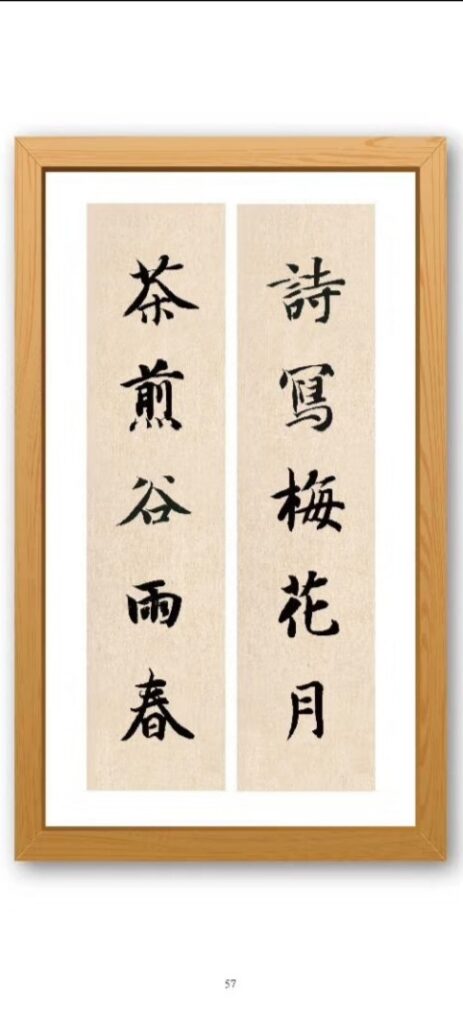 詩寫梅花月
茶煎谷雨春
57